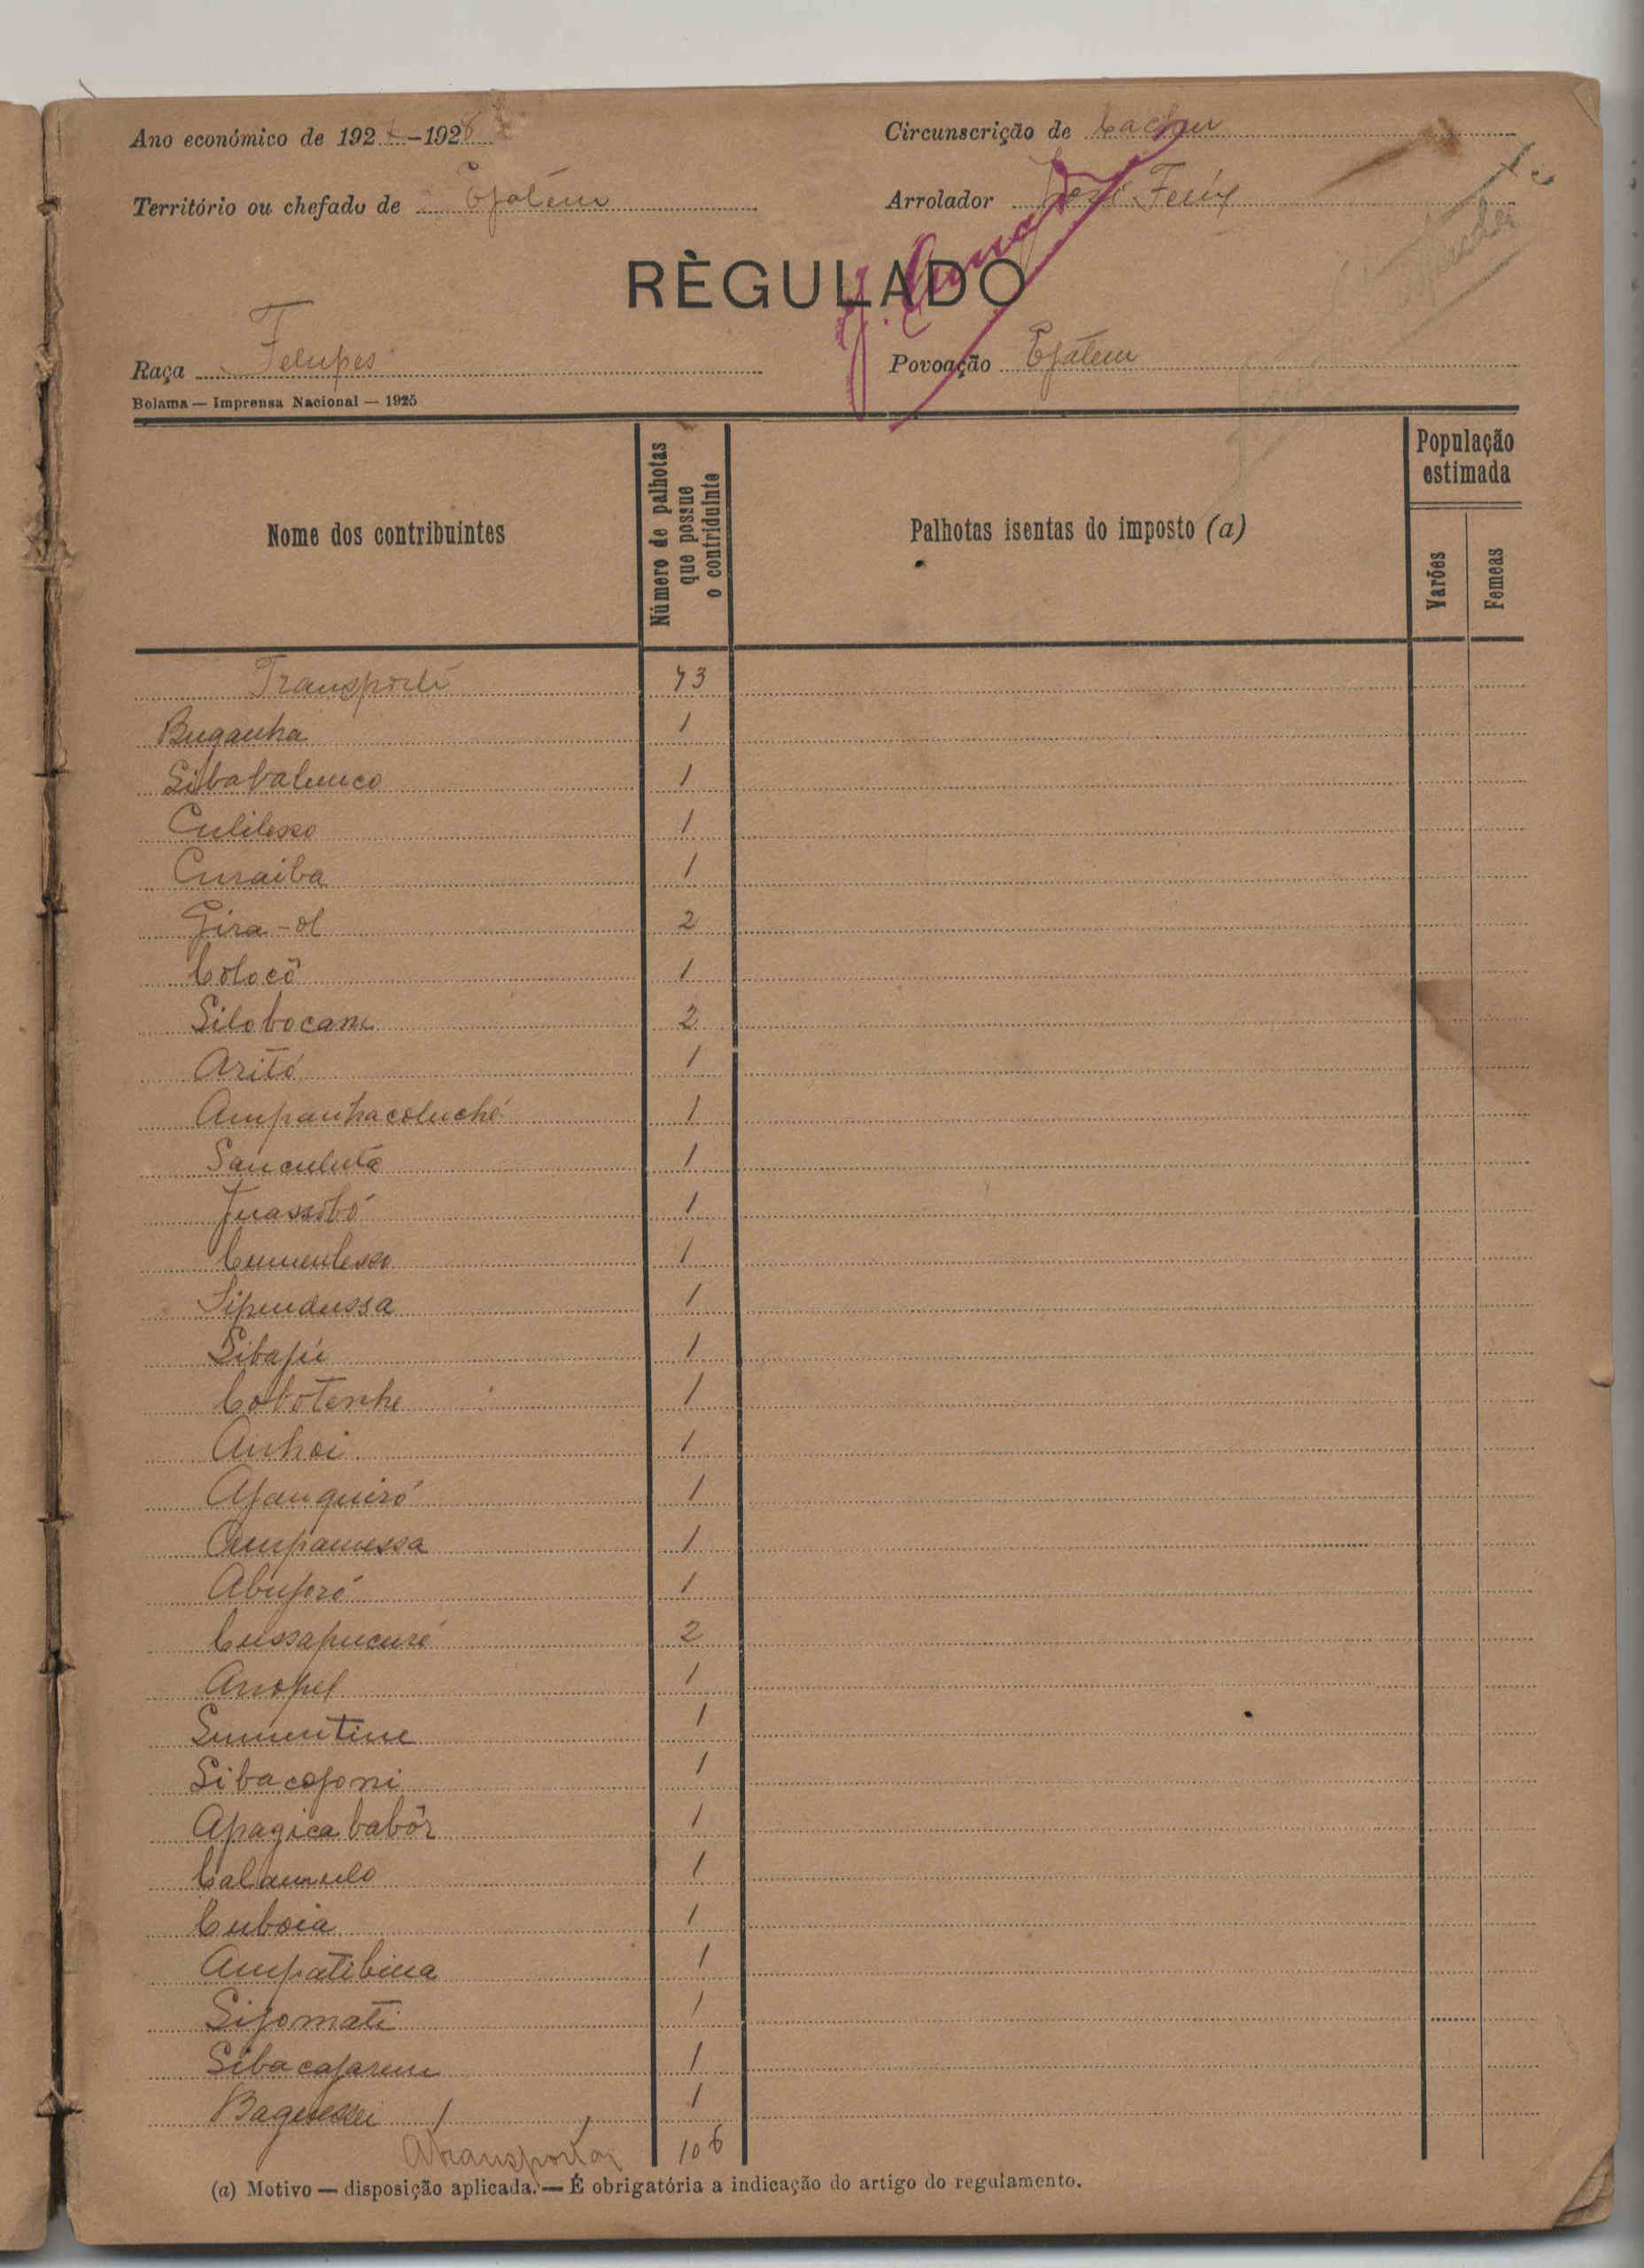 Ano económico de 1927-1928
Circunscrição de Cacheu
Território ou chefado de Ejatem
Arrolador José Feliz
RÈGULADO
Raça Felupes
Povoação Ejátem
Bolama — Imprensa Nacional — 1925
Nome dos contribuintes
Número de palhotas que possue o contriduinte
Palhotas isentas do imposto (a)
População estimada
Varões
Femeas
Transporte 73
Buganha 1
Sibabalunco 1
Culilesso 1
Curaiba 1
Gira-ol 2
Colocô 1
Silobocane 2
Aritó 1
Ampanhacoluché 1
Sanculutá 1
Juassobó 1
Cumenlesso 1
Sipendussa 1
Sibajú 1
Cobotenhe 1
Anhoi 1
Ajanqueiró 1
Ampamessa 1
Abujoró 1
Cussapucuró 2
Anopel 1
Sumentine 1
Sibacojoni 1
Apagica babôr 1
Calamulo 1
Cuboia 1
Ampatibina 1
Sijomati 1
Sibacajarem 1
Baguessei 1
A transportar 106
(a) Motivo — disposição aplicada. — É obrigatória a indicação do artigo do regulamento.